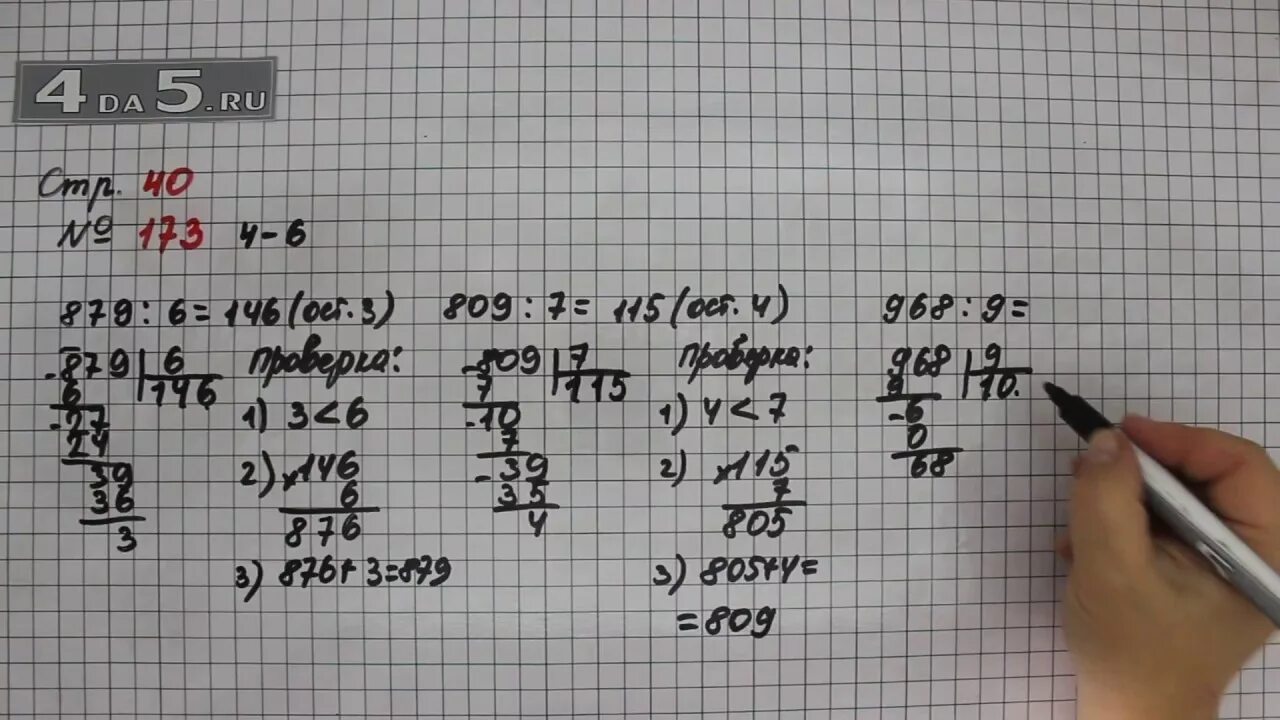 4 DA 5.RU
Стр. 40
№ 173 4-6
879 : 6 = 146 (ост. 3)
-879 | 6
6 146
-27
24
39
36
3
Проверка:
1) 3 < 6
2) ×146
6
876
3) 876 + 3 = 879
809 : 7 = 115 (ост. 4)
-809 | 7
7 115
-10
7
-39
35
4
Проверка:
1) 4 < 7
2) ×115
7
805
3) 805 + 4 =
= 809
968 : 9 =
968 | 9
9 10.
-6
0
68